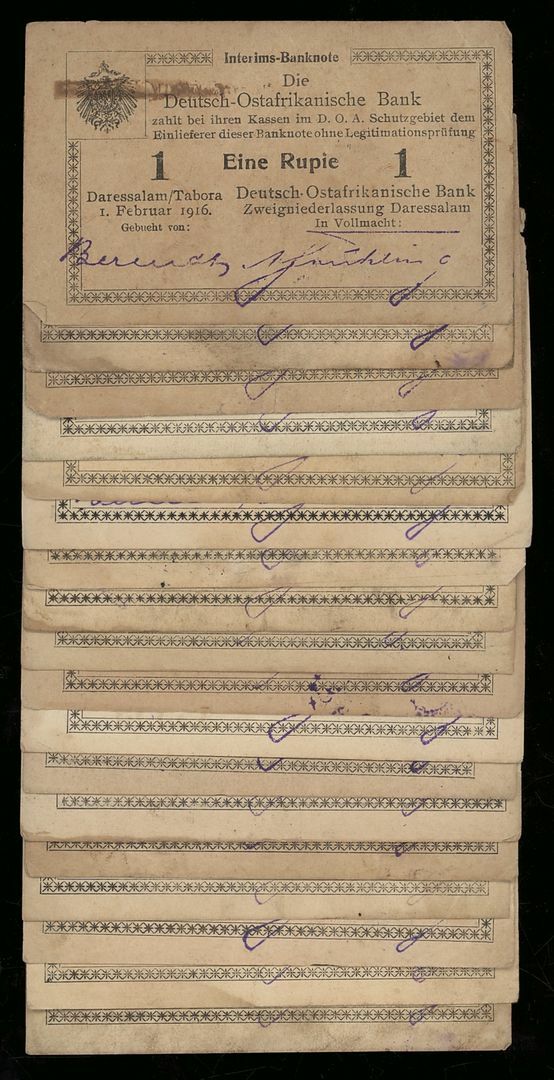 Interims-Banknote
Die
Deutsch-Ostafrikanische Bank
zahlt bei ihren Kassen im D. O. A. Schutzgebiet dem
Einlieferer dieser Banknote ohne Legitimationsprüfung
1 Eine Rupie 1
Daressalam/Tabora
1. Februar 1916.
Gebucht von:
Deutsch-Ostafrikanische Bank
Zweigniederlassung Daressalam
In Vollmacht: